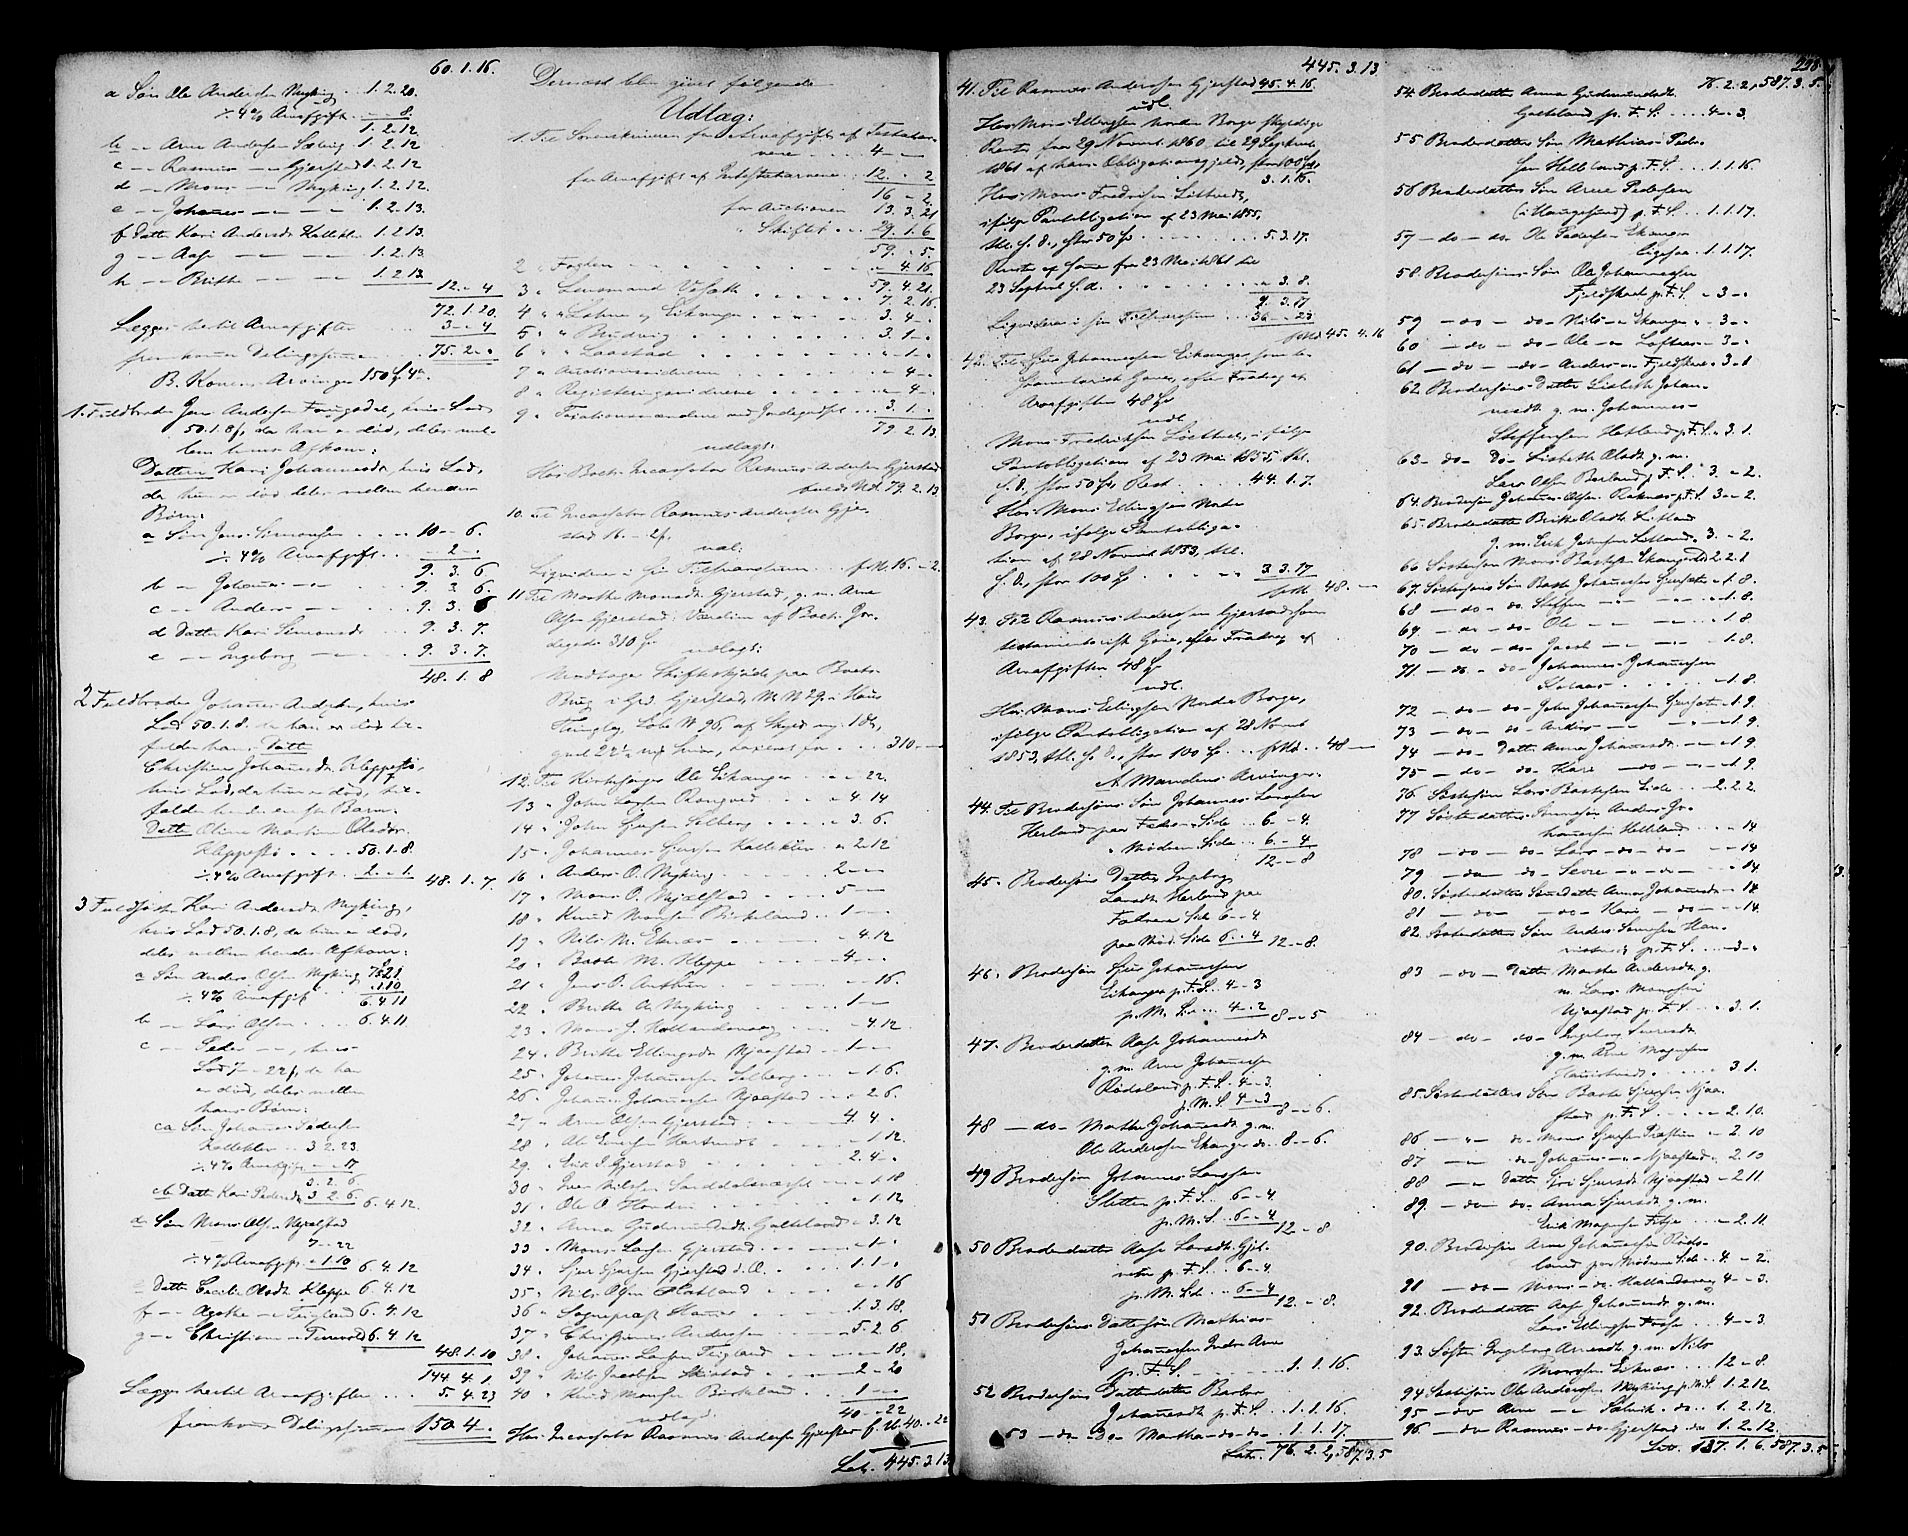 60.1.16.
a Søn Ole Andersen Myking . . 1.2.20.
÷ 4% Arvafgift . . 8.
1.2.12
b - - Arne Andersen Sæbvig 1.2.12
c - - Rasmus - - Gjerstad 1.2.12
d - - Mons - - Myking 1.2.12.
e - - Johannes - - - 1.2.13.
f Datter Kari Andersdr. Kallekleiv 1.2.13
g - - Aase - - - 1.2.13
h - - Brithe - - - 1.2.13
12 - 4
72.1.20.
Lægges hertil Arvafgiften . . 3 - 4
fremkommer Delingssummen . . 75.2 -
B. Konens Arvinger 150 Spd. 4
50.1.8, da han er død, deles mel-
lem hans Afkom:
Datter Kari Johannesdr, hvis Lod,
da hun er død deles mellem hendes
Børn:
a Søn Jens Simonsen . . . 10 - 6.
÷ 4% Arvafgift . . . 2 -
9. 3. 6
b - - Johannes - - 9. 3. 6.
c - - Anders - - 9. 3. 6
d Datter Kari Simonsdr . . 9. 3. 7.
e - - Ingeborg - - 9. 3. 7.
48.1.8
2 Fuldbroder Johannes Andersen, hvis
Lod 50.1.8. da han er død til-
falder hans Datter
Christine Johannesdr. Kleppestø,
hvis Lod, da hun er død, til-
falder hendes eneste Barn.
Datter Oline Martine Olsdr.
Kleppestø . . . . 50.1.8.
÷ 4% Arvafgift . . 2. - 1. 48.1.7.
3 Fuldsøster Kari Andersdr Myking,
hvis Lod 50.1.8, da hun er død,
deles mellem hendes Afkom:
a Søn Anders Olsen Myking
÷ 4% Arvafgift . . 1.10
6.4.11
b - - Lars Olsen . . . 6.4.11
c - - Peder - -, hvis
Lod 7 - 22, da han
er død, deles mellem
hans Børn:
ca Søn Johannes Pedersen
Kallekleiv . . 3 2.23.
÷ 4% Arvafgift - - 17
3. 2. 6
cb Datter Kari Pedersdr 3. 2. 6. 6.4.12
d Søn Mons Olsen Mjælstad
7 - 22
÷ 4% Arvafgift - 1.10 6.4.12
e Datter Cecilie Olsdr. Kleppe 6.4.12
f - - Agathe - - Teigland 6.4.12
g - - Christiane - Tunvold 6.4.12
48.1.10
144.4.1.
Lægges hertil Arvafgiften . . . 5.4.23
fremkommer Delingssummen 150.4 -
Dernæst blev gjort følgende
Udlæg:
1. Til Sorenskriveren for Arveafgift af Testatar-
verne . . . . 4 - -
for Arvafgift af Intestatarverne . . 12. - 2
16 - 2.
for Auctionen 13.3.21
" Skiftet . . . 29.1.6
59. - 5.
2 " Fogden . . . . . . . - 4.16
59.4.21.
3 " Lensmand Vesæth . . . . 7. 2.16.
4 " " Lehne og Eikanger . . . 3. 4 -
5 " " Budvig . . . . . . 3. 1 -
6 " " Laastad . . . . . . - 1 -
7 " Auctionsvidnerne . . . . . - 4 -
8 " Registreringsvidnerne . . . . - 4 -
9 " Taxationsmændene ved Jordegodset . . 3. 1 -
79. 2. 13.
udlagt:
Hos Boets Incassator Rasmus Andersen Gjerstad
beholdt 79. 2. 13
10. Til Incassator Rasmus Andersen Gjer-
stad 16. - 2.
udl:
Liquideres i sin Tilsvarssum . . f. Ud. 16. - 2.
11 Til Marthe Monsdr. Gjerstad, g. m. Arne
Olsen Gjerstad: Værdien af Boets Jor-
degods 310 Spd.
udlagt:
Modtage Skifteskjøde paa Boets
Brug i Grd. Gjerstad, M.N. 29 i Haus
Thinglag, Løbe N. 96, af Skyld
. . . 310 - -
12. Til Kirkesanger Ole Eikanger . . - - 22.
13 " John Larsen Rongved . . . - 4.14
14 " John Sjursen Solberg . . . - 3.6.
15 " Johannes Sjursen Kallekleiv - 2.12
16 " Anders O. Myking . . . . 2 - -
17 " Mons O. Mjælstad . . . . 5 - -
18 " Knud Monsen Birkeland . . 1 - -
19 " Nils M. Eknæs . . . . - 4.12
20 " Baste M. Kleppe . . . - 4 -
21 " Jens O. Austlein . . . . . - - 16.
22 " Brithe A. Myking . . . . . 1 - -
23 " Mons J. Hollandsvaag . . - 4.12
24 " Brithe Ellingsdr. Mjælstad . . 1 - -
25 " Johannes Johannessen Solberg . . - 1.6.
26 " Johannes Johannessen Mjælstad . . - 2.6.
27 " Arne Olsen Gjerstad . . . . 4. 4 -
28 " Ole Einersen Hartveidt . . . - 1.12.
29 " Erik J. Gjerstad . . . . 2. 4 -
30 " Iver Nilssen Sanddalsvæset . . - 1.18
31 " Ole O. Hondvi . . . . . - 1.12
32 " Anna Gudmundsdr. Galteland . . - 3.12
33 " Mons Larsen Gjerstad . . . . - 1 -
34 " Sjur Sjursen Gjerstad d. Æ. . . 1. 1 -
35 " Nils Olsen Hatland . . . - - 16
36 " Sognepræst Hauser . . . . 1. 3. 18.
37 " Christopher Andersen . . . - 5. 2. 6
38 " Johannes Larsen Teigland . . . - - 18.
39 " Nils Jacobsen Skistad . . . . 2 - 20
40 " Knud Monsen Birkeland . . . 1 - -
40. - 22
udlagt:
Hos Incassator Rasmus Andersen Gjerstad f. Ud. 40. - 22
Lat. 445.3.13
445.3.13
41. Til Rasmus Andersen Gjerstad 45.4.16.
udl.
Hos Mons Ellingsen Nordre Borge skyldige
Renter fra 29 Novembr. 1860 til 29 Septembr.
1861 af hans Obligationsgjeld, stor 100 Spd.
3.1.16.
Hos Mons Fredriksen Løttveit,
ifølge Pantobligation af 23 Mai 1855,
thl. s. D., stor 50 Spd. . . . . . . 5.3.17.
Renter af samme fra 23 Mai 1861 til
23 Septembr. s. A. . . . . . - 3. 8.
9. 3. 17
Liquideres i sin Tilsvarssum . . 36 - - 23
f. Ud. 45.4.16
42. Til Sjur Johannessen Eikanger som te-
stamentarisk Gave, efter Fradrag af
Arvafgiften 48 Spd.
udl.
Mons Fredriksen Løttveit, ifølge
Pantobligation af 23 Mai 1855, thl.
s. D., stor 50 Spd., Rest . . . . 44. 1. 7.
Hos Mons Ellingsen Nordre
Borge, ifølge Pantobliga-
tion af 28 Novembr. 1853, thl.
s. D., stor 100 Spd. . . . - - 3. 3. 17
f. Ud. 48. - -
43. Til Rasmus Andersen Gjerstad som
testamentarisk Gave, efter Fradrag af
Arvafgiften 48 Spd.
udl.
Hos Mons Ellingsen Nordre Borge,
ifølge Pantobligation af 28 Novembr.
1853, thl. s. D., stor 100 Spd. . . f. Ud. . . 48 - -
A. Mandens Arvinger.
44. Til Brodersøns Søn Johannes Larssen
Herland paa Fædrene Side . . 6 - 4.
" Mødrene Side . . 6. - 4
12 - - 8
45. Brodersøns Datter Ingeborg
Larsdr. Herland paa
Fædrene Side 6 - 4.
paa Mød. Side 6. - 4 12 - 8.
46. Brodersøn Sjur Johannessen
Eikanger p. F. S. . . 4 - 3
p. M. S. . . 4. - 2 8 - - 5
47. Broderdatter Aase Johannesdr.
g. m. Arne Johannessen
Rødsland p. F. S. 4 - 3.
p. M. S. 4 - 3 8 - - 6.
48 - do - Marthe Johannesdr. g. m.
Ole Andersen Ekanger do. . 8 - 6.
49 Brodersøn Johannes Larssen
Sletten p. F. S. . . 6 - 4.
p. M. S. . . 6 - 4 12 - 8
50 Broderdatter Aase Larsdr.
p. F. S. . . 6 - 4.
p. M. Sde. . . 6 - 4 12. - 8.
51 Brodersøns Dattersøn Mathias
Johannessen Indre Arne
p. F. S. . . . . . . 1. 1. 16.
52 Brodersøns Datterdatter Barbro
Johannesdr p. F. S. . . 1. 1. 16
53 - do - Do - Martha - do - do . . 1. 1. 17.
Latr. 76. 2. 2, 587.3.5
228
Tr. 76. 2. 2, 587. 3. 5.
54. Broderdatter Anna Gudmundsdr.
Galteland p. F. S. . . . . 4 - 3.
55 Broderdatters Søn Mathias Peder-
sen Helleland p. F. S. . . . 1. 1. 16
56 Broderdatters Søn Arne Pedersen
(i Haugesund) p. F. S. . . 1. 1. 17.
57 - do - do - Ole Pedersen Ekanger
ligesaa . . 1. 1. 17.
58. Brodersøns Søn Ole Johannessen
Fjeldskaal p. F. S. - 3 -
59 - do - do - Nils - Ekanger - 3 -
60 - do - do - Ole - Loftaas - 3 -
61 - do - do - Anders - Fjeldskaal - 3 - 1
62 Brodersøns Datter Lisbeth Johan-
nesdr. g. m. Johannes
Steffensen Hetland p. F. S. - 3. 1.
63 - do - Do - Lisbeth Olsdr. g. m.
Lars Olsen Berland p. F. S. . 3. - 2.
64. Brodersøn Johannes Olsen Raknes p. F. S. 3 - 2.
65. Broderdatter Brithe Olsdr. Litland
g. m. Erik Johnsen Litland . 3. - 2.
66 Søstersøn Mons Bastesen Ekanger 2. 2. 1
67. Søstersøns Søn Baste Johannessen - 1. 8.
68 - do - do Steffen - - - - 1. 8.
69 - do - do - Ole - - - - 1 8
70 - do - do - Jacob - - - - 1. 8.
71 - do - do - Johannes Johannessen
Stokaas . . . . . - 1. 8.
72 - do - do - John Johannessen - 1. 9.
73 - do - do - Anders - - - - 1. 9.
74 - do - Datter Anna Johannesdr. - - 1. 9
75 - do - do - Kari - do - - 1. 9.
76 Søstersøn Lars Bastesen Lide . . 2. 2. 2
77 Søsterdatters Sønnesøn Anders Jo-
hannessen Helleland . . . - 14
78 - do - do - Lars - do - do - - - 14
79 - do - do - Sevre - - do - - - 14
80. Søsterdatters Sønnedatter Anna Johannesdr - 14.
81 - do - - do - Kari - do - - - 14.
82. Søsterdatters Søn Anders
p. F. S. . . . - 3 -
83 - do - Datter Marthe Andersdr. g.
m. Lars Monssen
Mjaatveit p. F. S. . . - 3. 1.
84 - do - do - Ingeborg
g. m. Arne Magnesen
. . . . . - 3 1.
85. Søsterdatters Søn Baste Sjursen Mjaa-
stad p. F. S. . . . - 2. 10.
86 - " - do - Mons Sjursen - 2. 10
87 - - do - Johannes - Mjaastad . 2. 10
88 - - Datter Guri Sjursdr Mjaastad - 2 11.
89. - do - do - Anna Sjursdr. g. m.
Erik Magnesen Fitje . . - 2. 11.
90. Brodersøn Arne Johannessen Røds-
land paa Mødrene Side . . 4. - 2.
91 - do - Mons - do - Hallandsvaag 4 - 3.
92. Broderdatter Aase Johannesdr. g. m.
Lars Ellingsen Fosse . . . 4 - 3.
93. Søster Ingeborg Arnesdr. g. m. Nils
Monssen Eiknæs . . . 12 - 8.
94 Søstersøn Ole Andersen Myking p. M. S. 1. 2. 12.
95 - do - Arne - - Sæbvik . do . . 1. 2. 12.
96 - do - Rasmus - do - Gjerstad do 1. 2. 12.
Latr. 137. 1. 6, 587. 3. 5